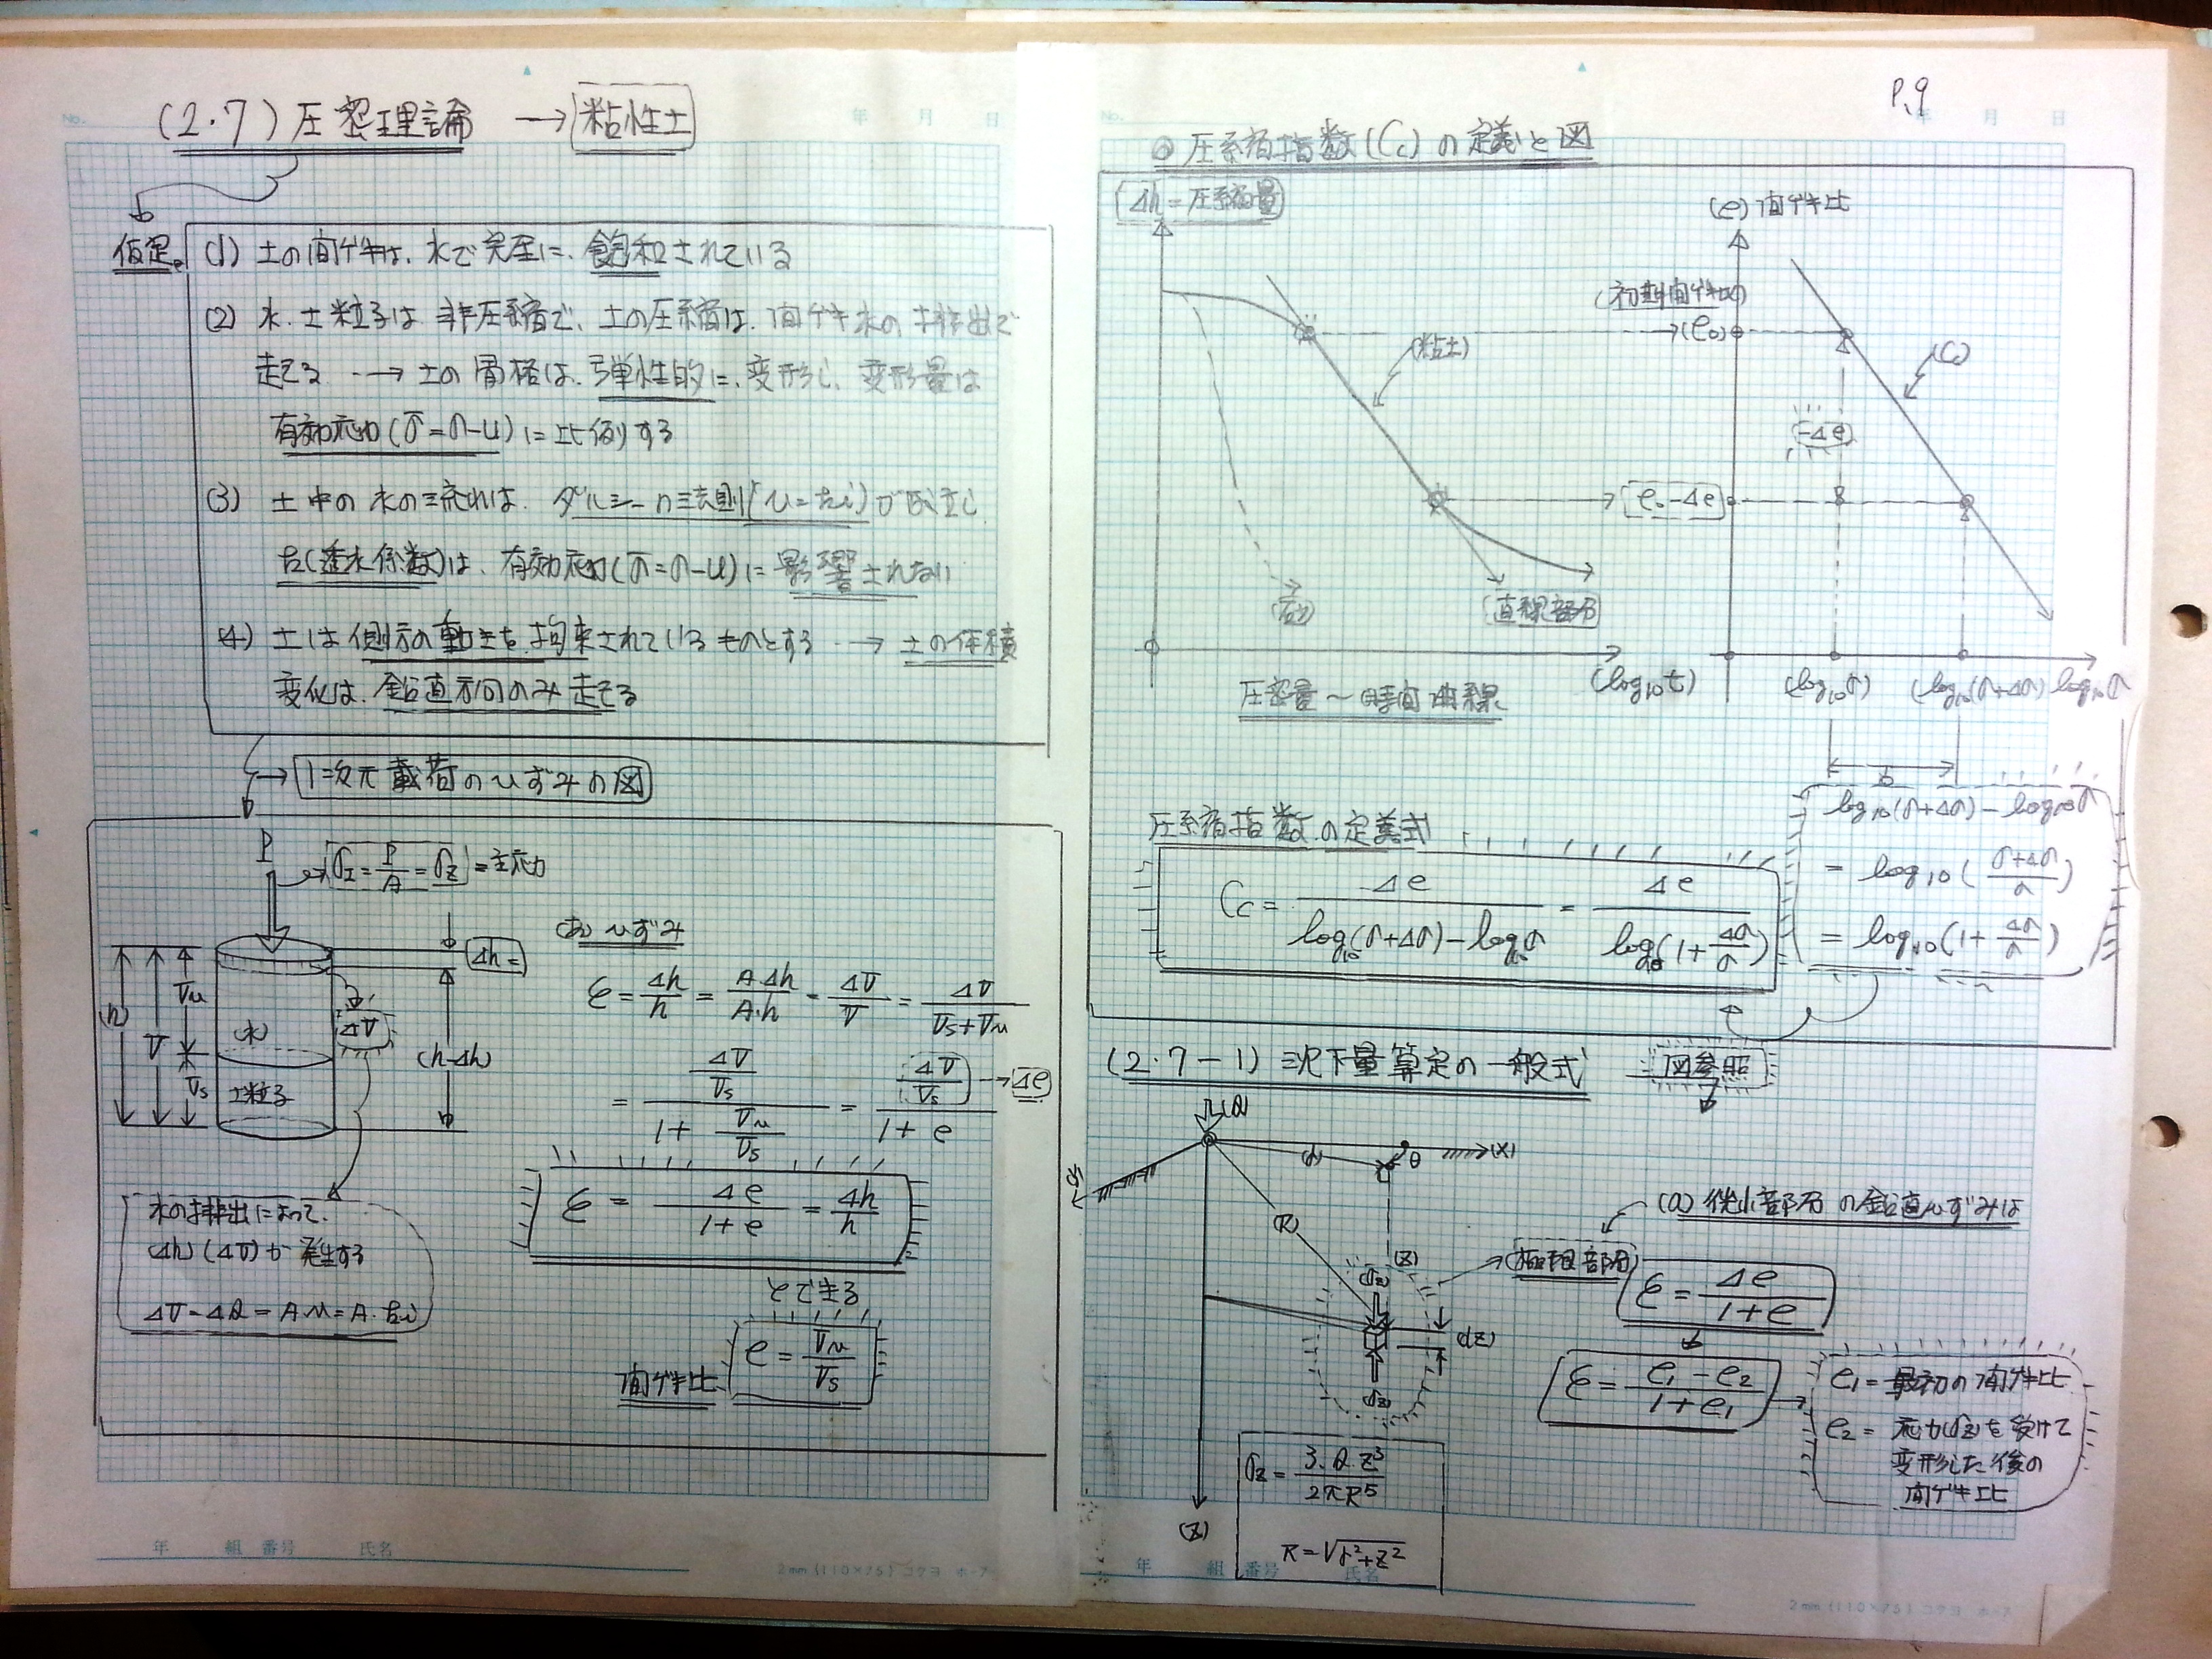 (2.7) 圧密理論 → 粘性土
仮定。
(1) 土の間ゲキは、水で完全に、飽和されている
(2) 水、土粒子は 非圧縮で、土の圧縮は、間ゲキ水の 排出で
起こる → 土の骨格は、弾性的に、変形し、変形量は
有効応力(σ̄=σ-u)に比例する
(3) 土中の水の流れは、ダルシーの法則(v=ki)が成立し
k(透水係数)は、有効応力(σ̄=σ-u)に影響されない
(4) 土は側方の動きを、拘束されているものとする → 土の体積
変化は、鉛直方向のみ起こる
→ 1次元載荷のひずみの図
P
σI = P/A = σz = 主応力
Δh =
(h)
V
Vv
Vs
(水)
土粒子
ΔV
(h-Δh)
(あ) ひずみ
ε = Δh/h = A・Δh/A・h = ΔV/V = ΔV/(Vs+Vv)
= (ΔV/Vs)/(1 + Vv/Vs) = (ΔV/Vs)/(1 + e) → Δe
ε = Δe/(1+e) = Δh/h
とできる
間ゲキ比 e = Vv/Vs
水の排出によって、
(Δh)(ΔV)が 発生する
ΔV = ΔQ = A・v = A・ki
年 組 番号 氏名
2mm (110×75) コクヨ ホ-7
P.9
No. 年 月 日
◎ 圧縮指数(Cc)の定義と図
Δh = 圧縮量
(粘土)
直線部分
(log10t)
圧密量〜時間 曲線
(e) 間ゲキ比
(初期間ゲキ比)
→(e0)
e0-Δe
-Δe
(Cc)
(log10σ)
(log10(σ+Δσ)
log10σ
圧縮指数の定義式
Cc = Δe/(log10(σ+Δσ)-log10σ) = Δe/log10(1+Δσ/σ)
log10(σ+Δσ) - log10σ
= log10((σ+Δσ)/σ)
= log10(1+Δσ/σ)
(2.7-1) 沈下量算定の一般式
図参照
(Q)
(X)
θ
(R)
(Z)
σz
(dZ)
σz
(Z)
σz = 3・Q・Z³/2πR⁵
R=√r²+Z²
(a) 微小部分の鉛直ひずみは
ε = Δe/(1+e)
ε = (e1-e2)/(1+e1)
e1 = 最初の間ゲキ比
e2 = 応力(σz)を受けて
変形した後の
間ゲキ比
年 組 番号 氏名
2mm (110×75) コクヨ ホ-7